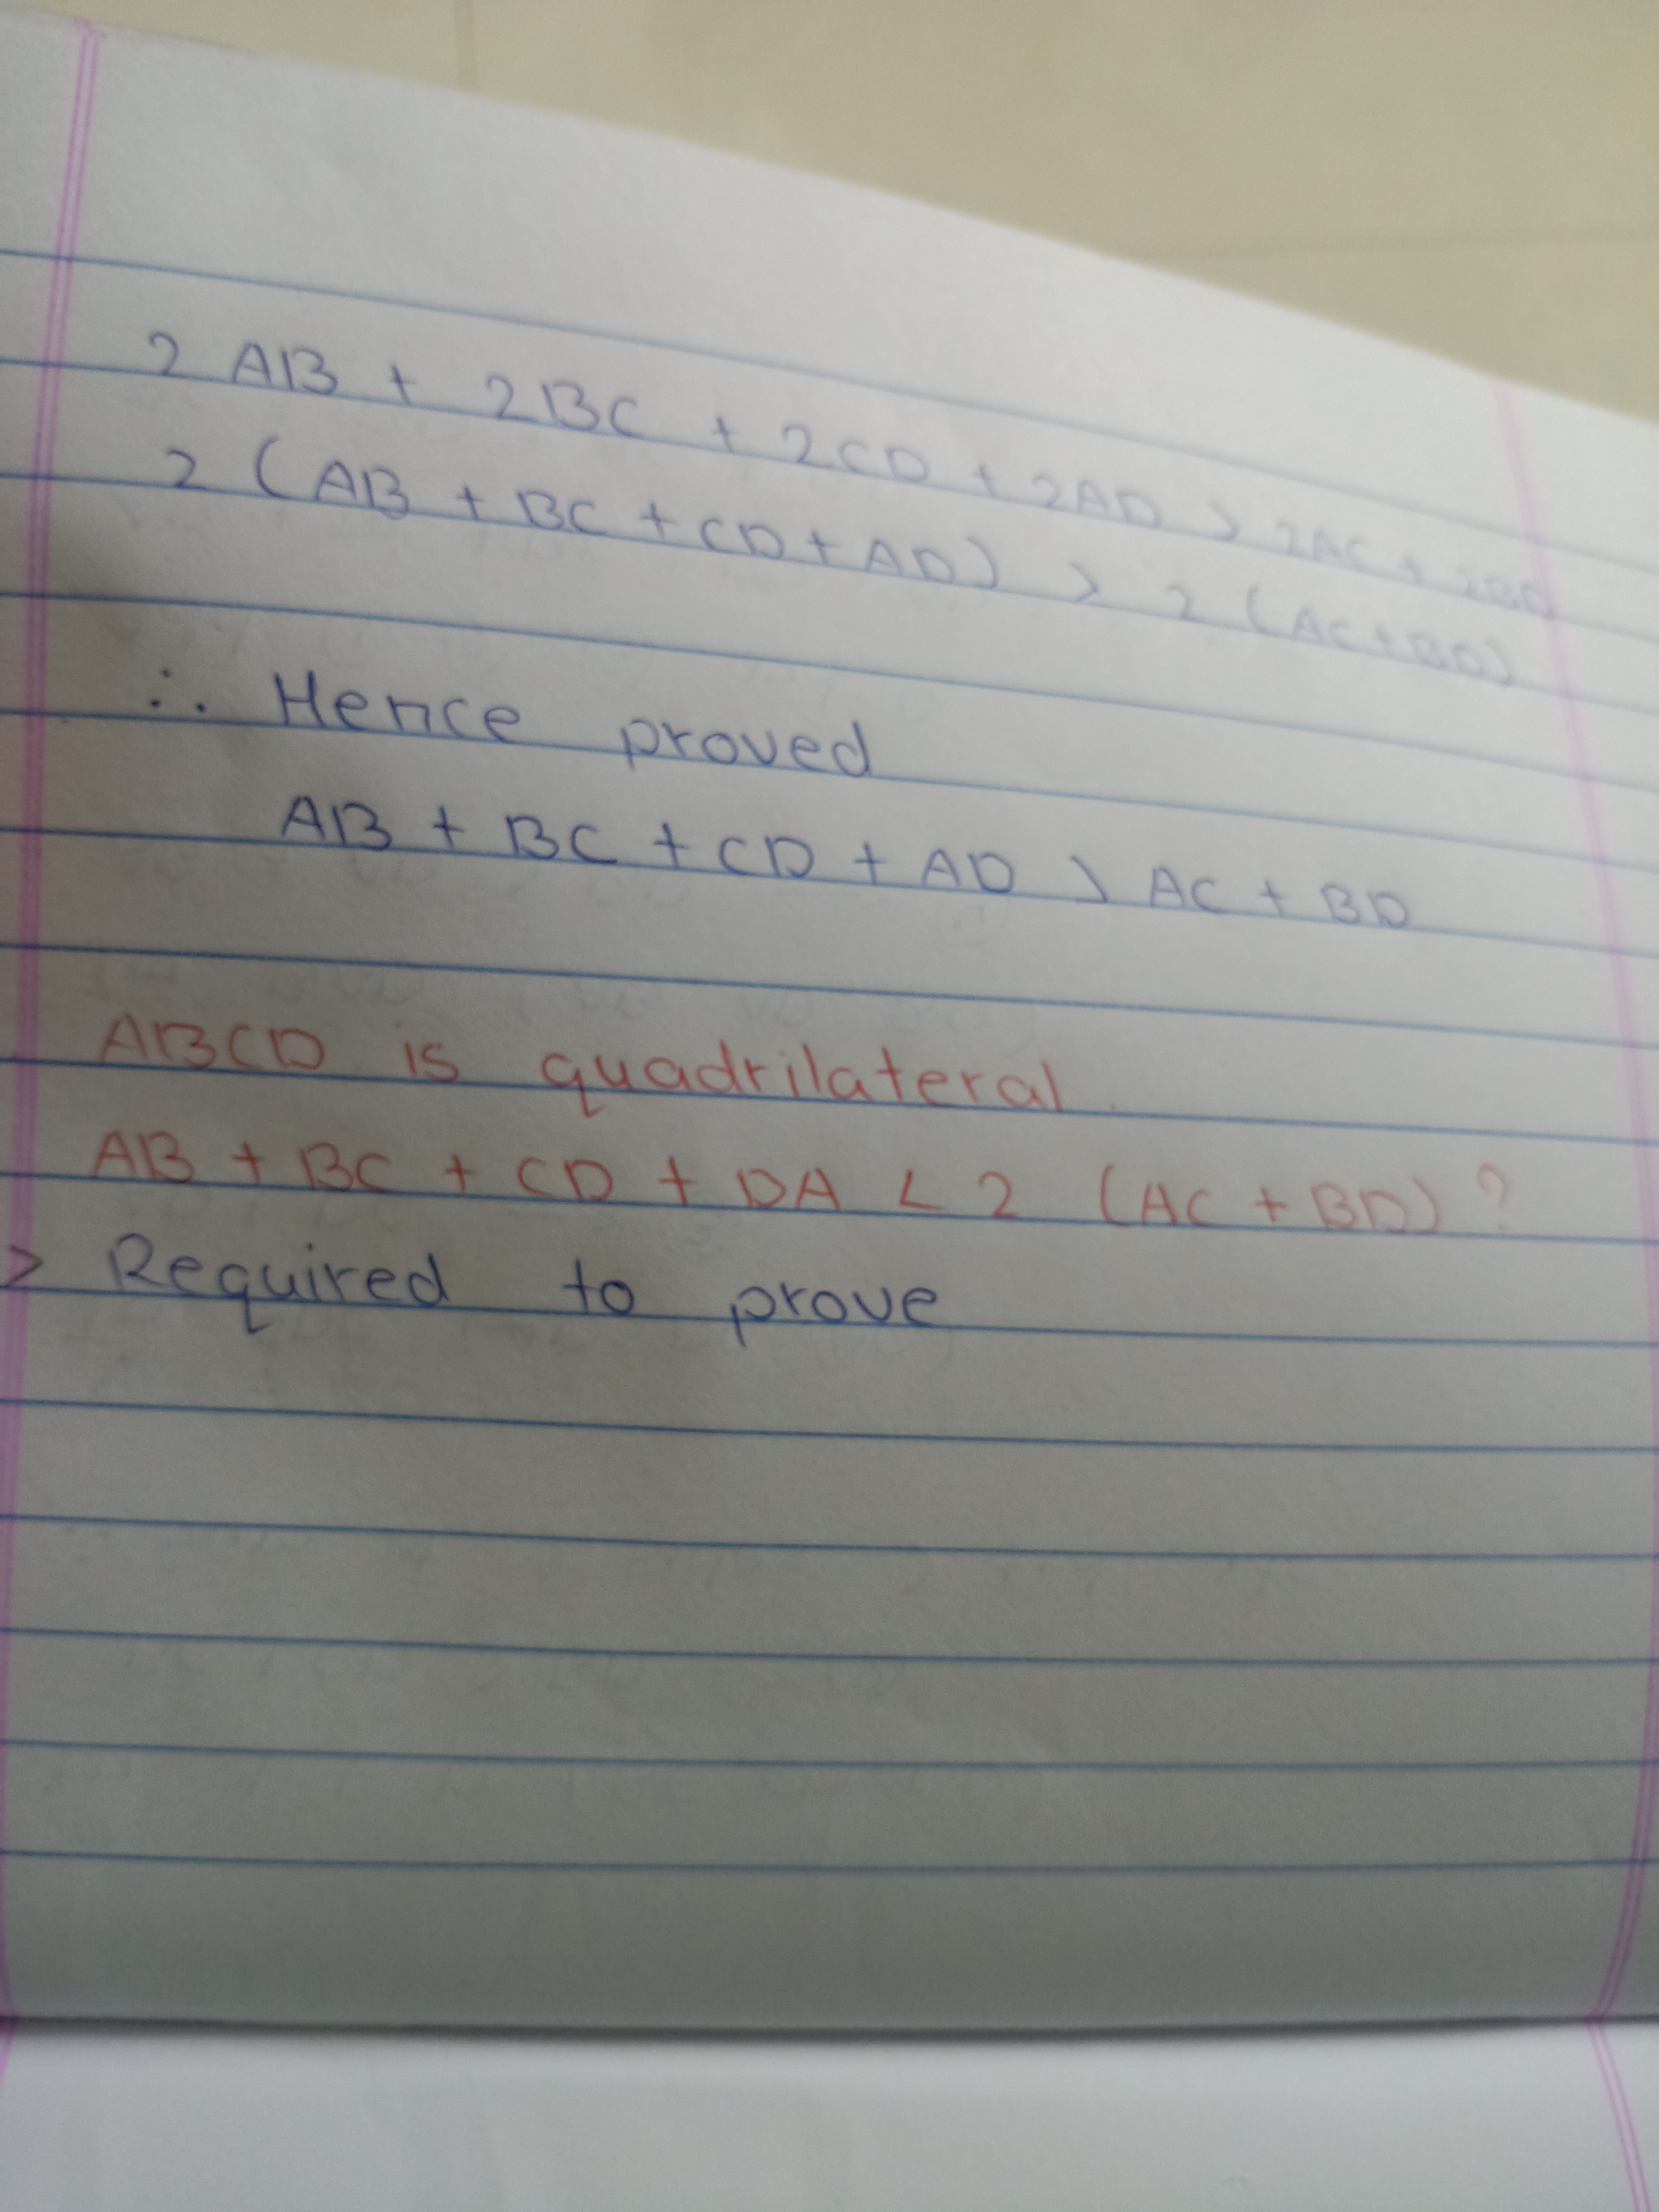 2 AB + 2BC + 2CD + 2AD > 2AC + 2BD
2 (AB + BC + CD + AD) > 2 (AC + BD)
∴ Hence proved
AB + BC + CD + AD > AC + BD
ABCD is quadrilateral
AB + BC + CD + DA < 2 (AC + BD) ?
> Required to prove